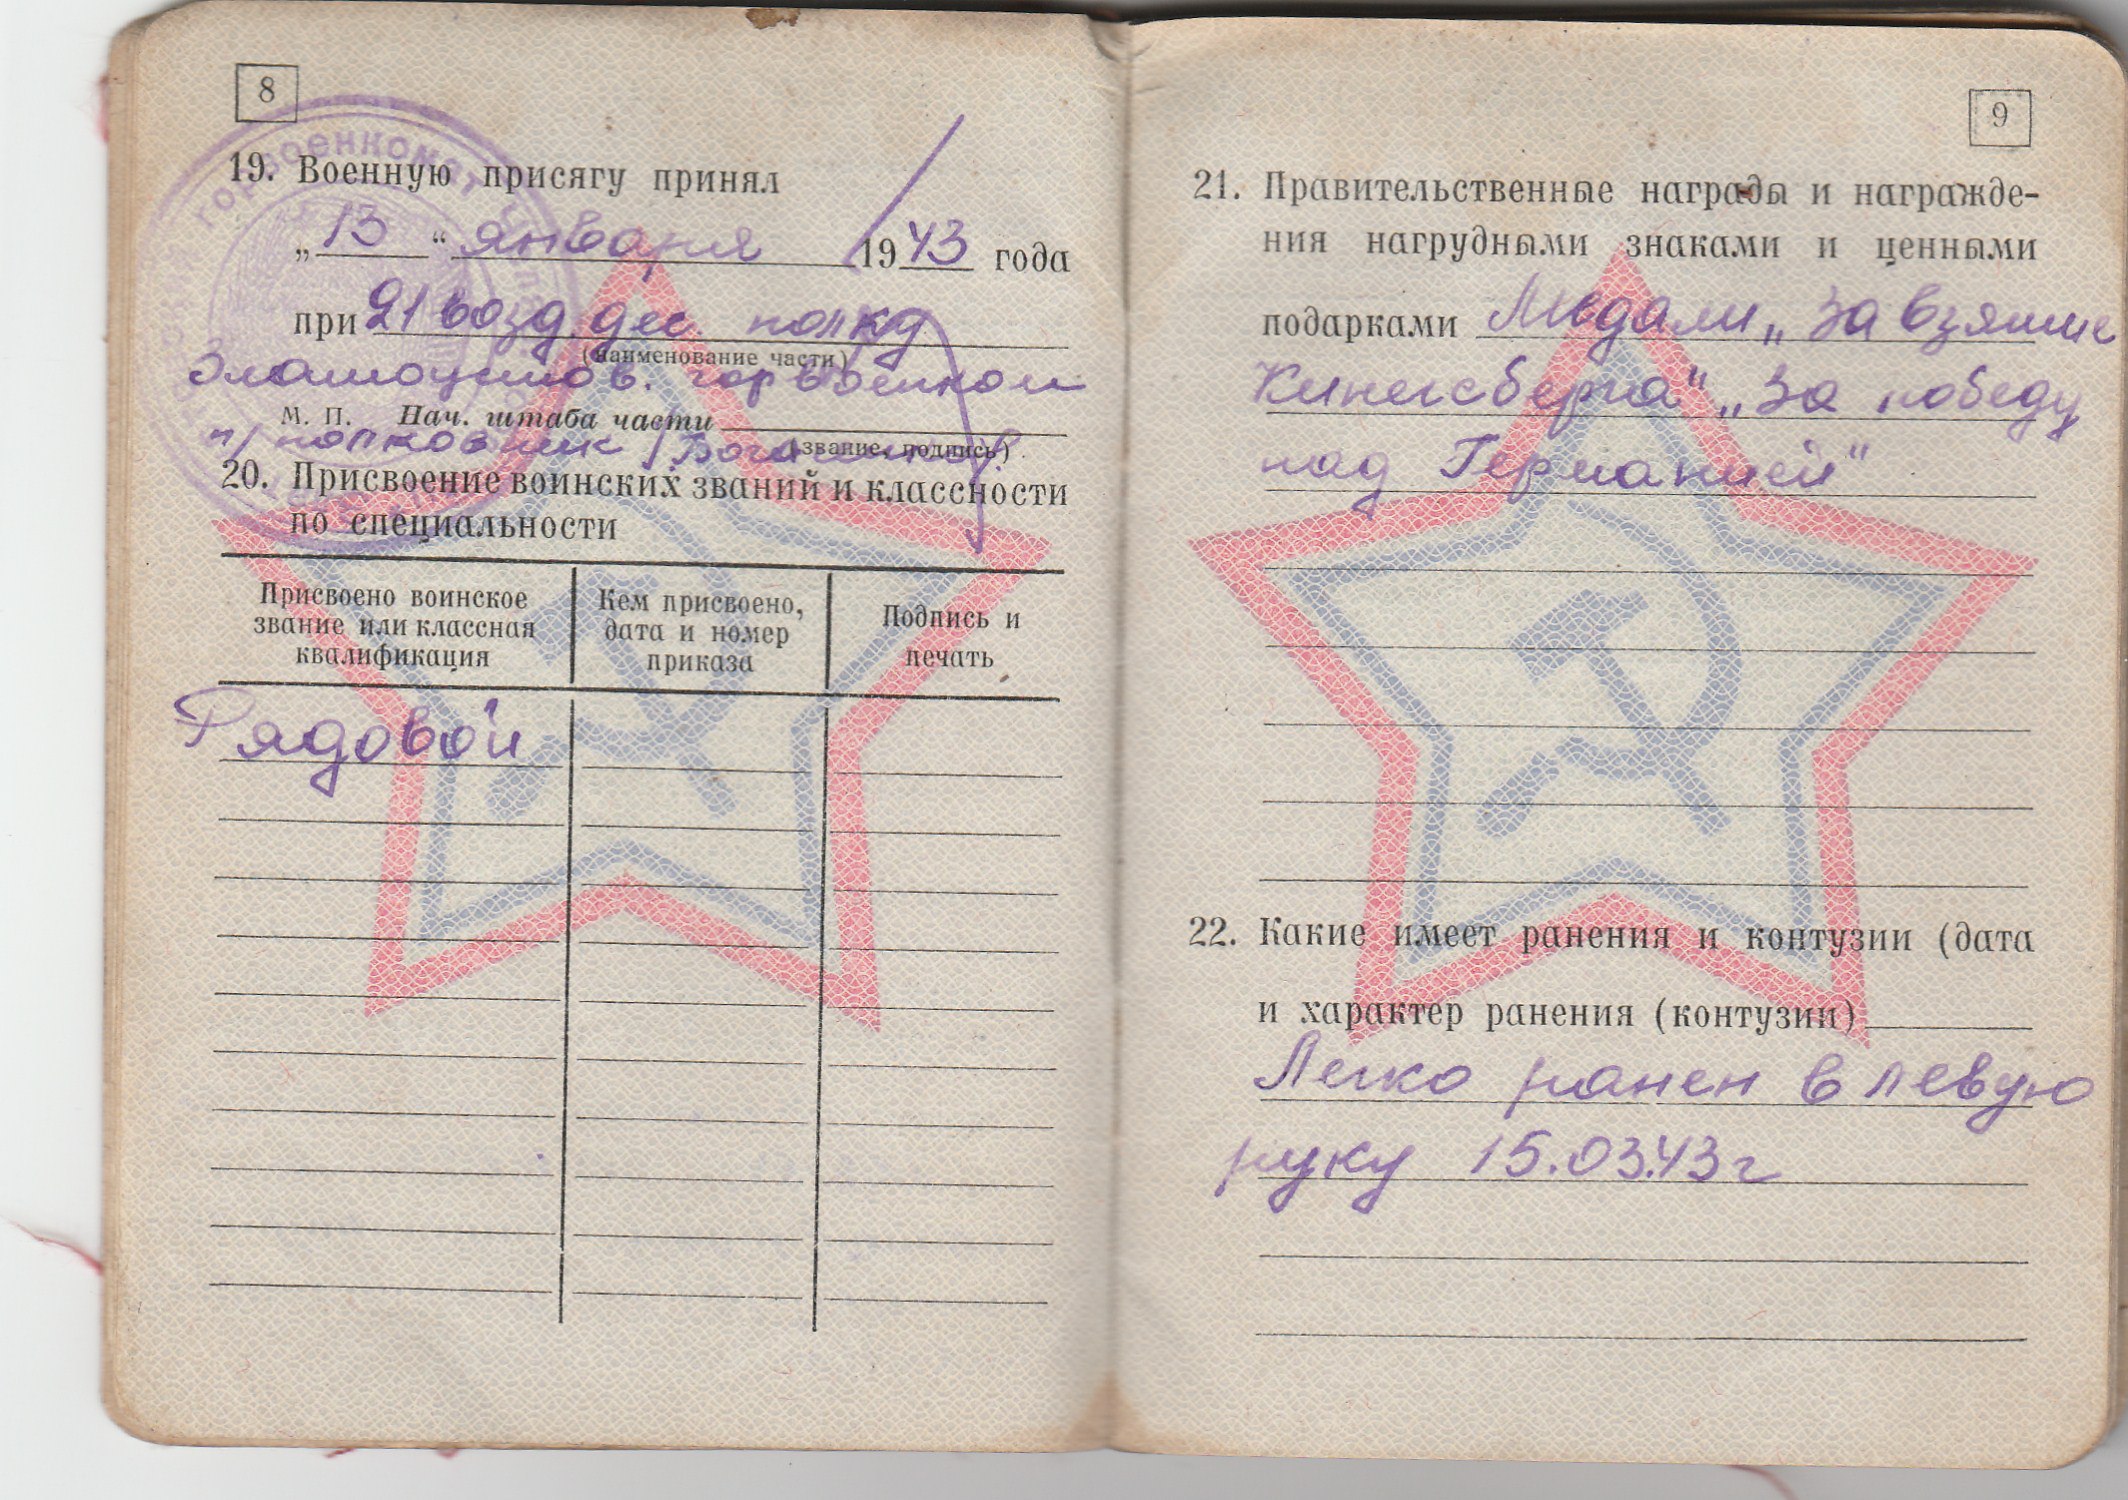 8
19. Военную присягу принял
„13“ января 1943 года
при 21 возд. дес. полку
(наименование части)
Златоустов. горвоенком
М. П. Нач. штаба части
п/полковник
(звание, подпись)
20. Присвоение воинских званий и классности
по специальности
Присвоено воинское
звание или классная
квалификация
Кем присвоено,
дата и номер
приказа
Подпись и
печать
Рядовой
горвоенкомат
9
21. Правительственные награды и награжде-
ния нагрудными знаками и ценными
подарками Медали „За взятие
Кинегсберга“ „За победу
над Германией“
22. Какие имеет ранения и контузии (дата
и характер ранения (контузии)
Легко ранен в левую
руку 15.03.43г